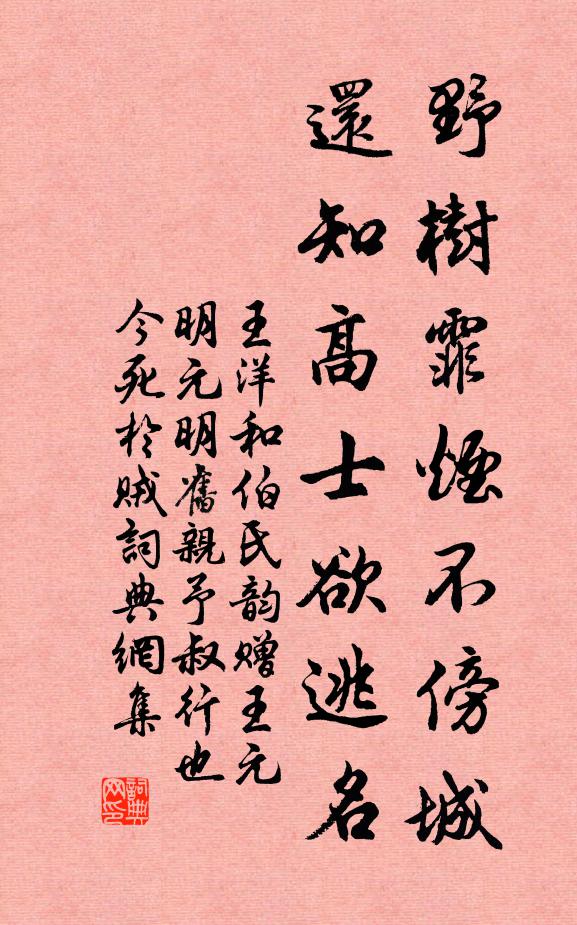 野樹霏煙不傍城
還知高士欲逃名
王洋和伯氏韵赠王元
明元明奮親予叔行也
今死於贼詞典網集
詞典
网印